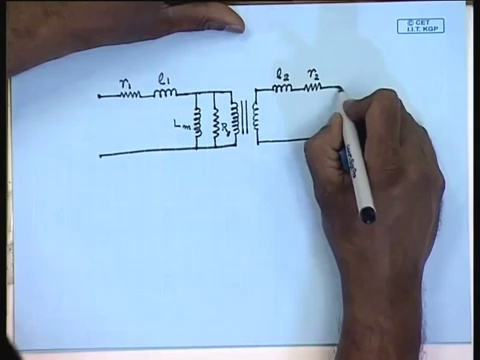 © CET
I.I.T. KGP
r₁ l₁ l₂ r₂
Lm